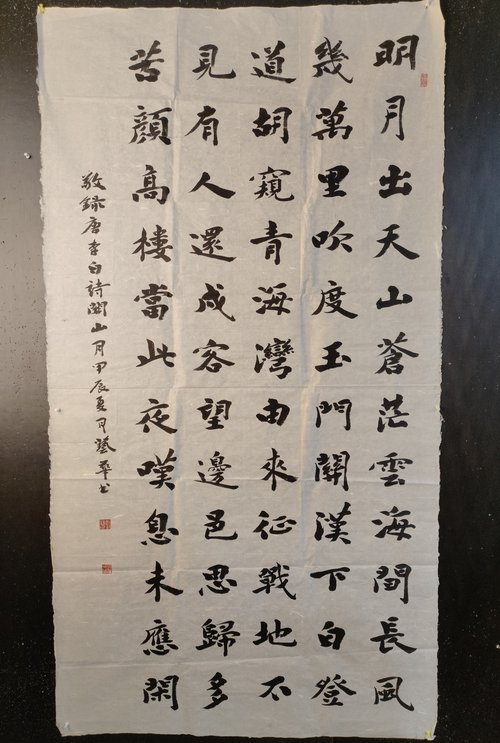 明月出天山蒼茫雲海間長風
幾萬里吹度玉門關漢下白登
道胡窺青海灣由來征戰地不
見有人還成客望邊邑思歸多
苦顏高樓當此夜嘆息未應閑
敬録唐李白詩關山月甲辰夏月華书